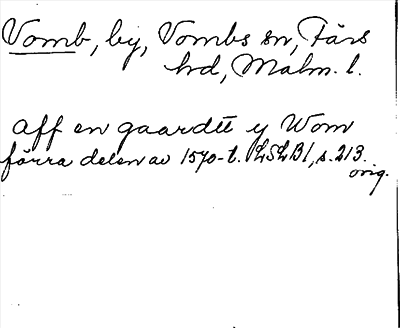 Vomb, by, Vombs sn, Färs
hrd, Malm. l.
Aff en gaardtt y Wom
förra delen av 1570-t. LSLB1, s. 213.
orig.